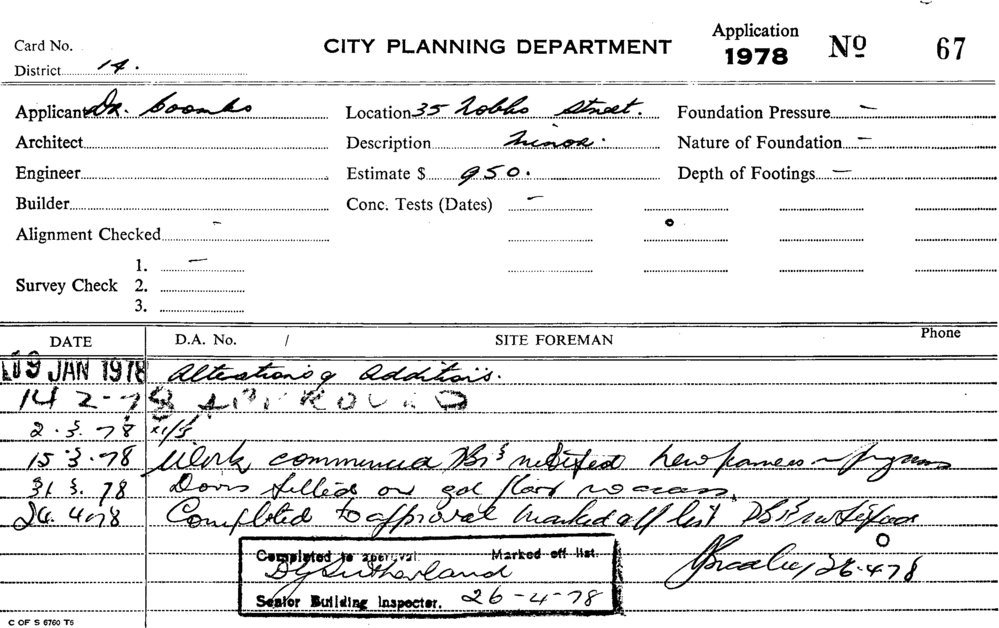 CITY PLANNING DEPARTMENT
Application
1978 Nº 67
Card No.
District 14.
Applicant Dr. Coombs Location 35 Hobbs Street. Foundation Pressure —
Architect Description Minor. Nature of Foundation —
Engineer Estimate $ 950. Depth of Footings —
Builder Conc. Tests (Dates) —
Alignment Checked —
1. —
Survey Check 2.
3.
DATE D.A. No. / SITE FOREMAN Phone
L09 JAN 1978 Alterations & Additions.
14 2-78 APPROVED
2.3.78
15 3.78 Work commenced notified new in progress
31 3. 78 Doors filled on gd floor no access.
26.4.78 Completed to approval marked off list
26.4.78
Completed to approval Marked off list.
DG Sutherland
Senior Building Inspector. 26-4-78
C OF S 6760 T5